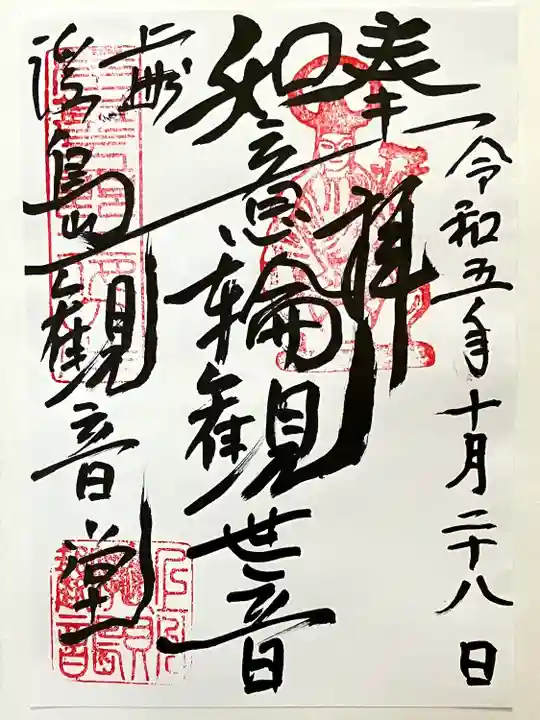 令和五年十月二十八日
奉拝
如意輪観世音
上州
浮島観音堂